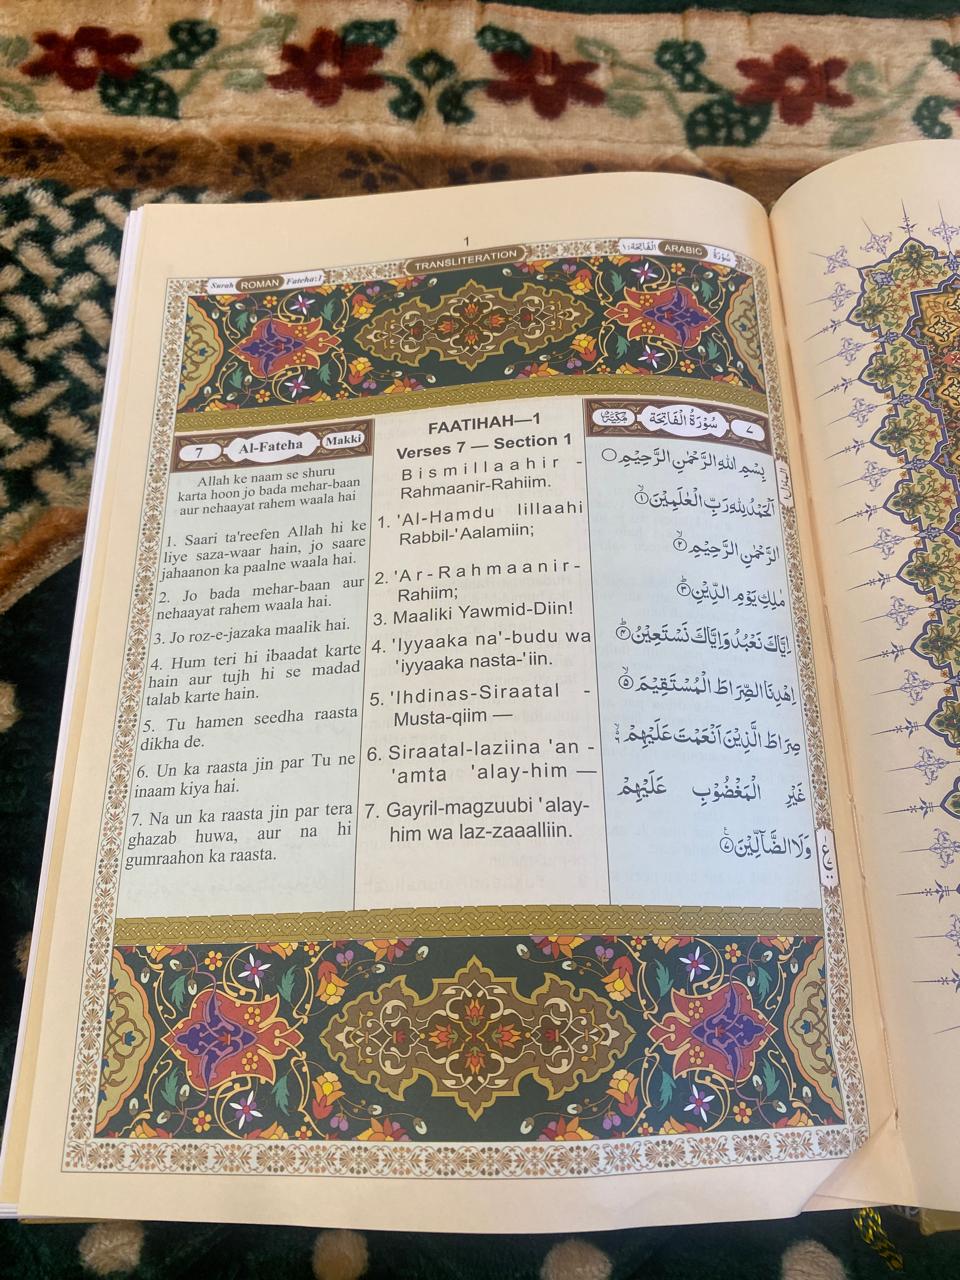 1
Surah ROMAN Fateha:1
TRANSLITERATION
سُوْرَةُ ARABIC الْفَاتِحَة:١
7 Al-Fateha Makki
Allah ke naam se shuru
karta hoon jo bada mehar-baan
aur nehaayat rahem waala hai
1. Saari ta'reefen Allah hi ke
liye saza-waar hain, jo saare
jahaanon ka paalne waala hai.
2. Jo bada mehar-baan aur
nehaayat rahem waala hai.
3. Jo roz-e-jazaka maalik hai.
4. Hum teri hi ibaadat karte
hain aur tujh hi se madad
talab karte hain.
5. Tu hamen seedha raasta
dikha de.
6. Un ka raasta jin par Tu ne
inaam kiya hai.
7. Na un ka raasta jin par tera
ghazab huwa, aur na hi
gumraahon ka raasta.
FAATIHAH—1
Verses 7 — Section 1
Bismillaahir -
Rahmaanir-Rahiim.
1. 'Al-Hamdu lillaahi
Rabbil-'Aalamiin;
2. 'Ar-Rahmaanir-
Rahiim;
3. Maaliki Yawmid-Diin!
4. 'Iyyaaka na'-budu wa
'iyyaaka nasta-'iin.
5. 'Ihdinas-Siraatal -
Musta-qiim —
6. Siraatal-laziina 'an -
'amta 'alay-him —
7. Gayril-magzuubi 'alay-
him wa laz-zaaalliin.
٧ سُوْرَةُ الْفَاتِحَة مَكِّيَّة
بِسْمِ اللهِ الرَّحْمٰنِ الرَّحِيْمِ
اَلْحَمْدُ لِلّٰهِ رَبِّ الْعٰلَمِيْنَ ١
الرَّحْمٰنِ الرَّحِيْمِ ٢
مٰلِكِ يَوْمِ الدِّيْنِ ٣
اِيَّاكَ نَعْبُدُ وَاِيَّاكَ نَسْتَعِيْنُ ٤
اِهْدِنَا الصِّرَاطَ الْمُسْتَقِيْمَ ٥
صِرَاطَ الَّذِيْنَ اَنْعَمْتَ عَلَيْهِمْ ٦
غَيْرِ الْمَغْضُوْبِ عَلَيْهِمْ
وَلَا الضَّآلِّيْنَ ٧